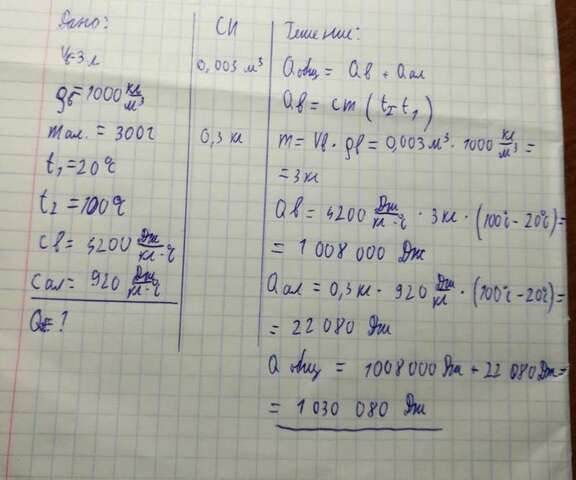 Дано:
Vв=3л
ρв=1000 кг/м³
mал. = 300г
t₁=20℃
t₂=100℃
cв= 4200 Дж/кг·℃
cал= 920 Дж/кг·℃
Q= ?
СИ
0,003 м³
0,3 кг
Решение:
Qобщ = Qв + Qал
Qв = cm (t₂ t₁)
m= Vв · ρв = 0,003м³ · 1000 кг/м³ =
= 3кг
Qв = 4200 Дж/кг·℃ · 3кг · (100℃ - 20℃)=
= 1 008 000 Дж
Qал = 0,3кг · 920 Дж/кг · (100℃ - 20℃)=
= 22 080 Дж
Q общ = 1008000 Дж + 22 080 Дж=
= 1 030 080 Дж